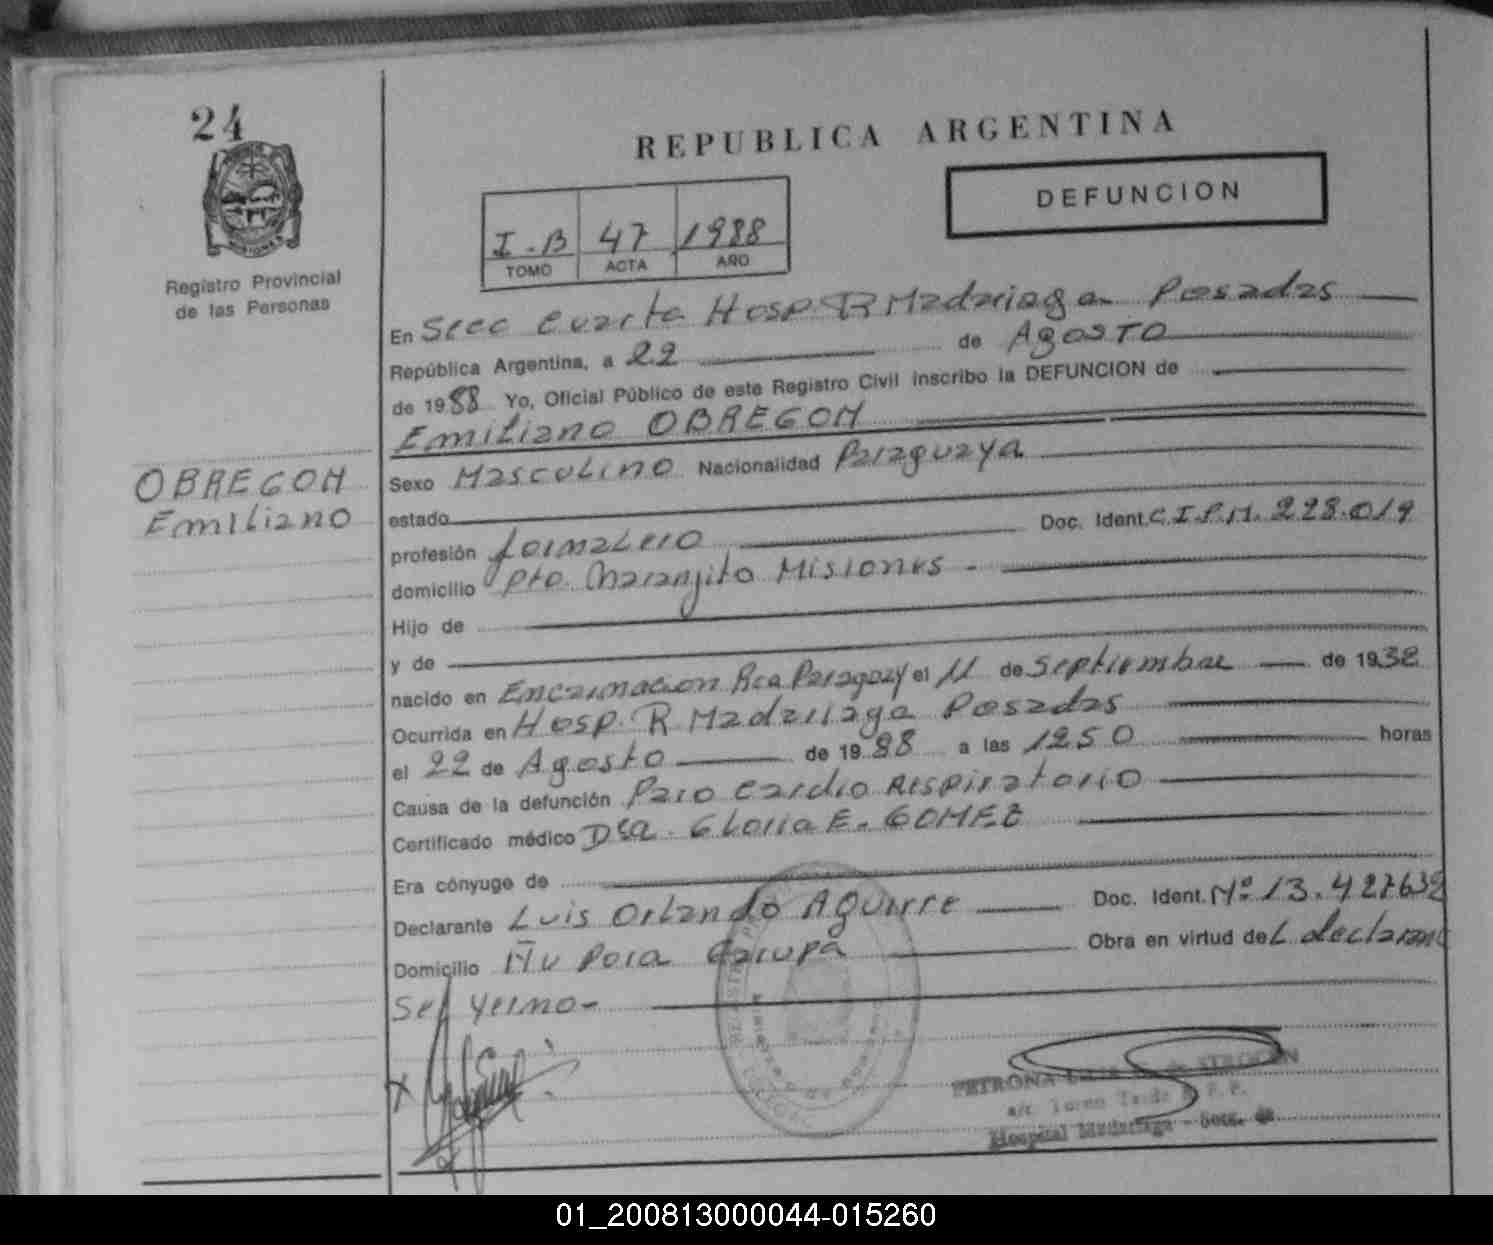 24
REPUBLICA ARGENTINA
DEFUNCION
I-B 47 1988
TOMO ACTA AÑO
MISIONES
Registro Provincial
de las Personas
En Secc Cuarta Hosp. R Madariaga Posadas
República Argentina, a 22 de Agosto
de 1988 Yo, Oficial Público de este Registro Civil inscribo la DEFUNCION de
Emiliano OBREGON
OBREGON
Emiliano
Sexo Masculino Nacionalidad Paraguaya
estado
Doc. Ident. C.I.P.M. 228.019
profesión Jornalero
domicilio Pto. Naranjito Misiones -
Hijo de
y de
nacido en Encarnacion Rca Paraguay el 11 de Septiembre de 1938
Ocurrida en Hosp. R Madariaga Posadas
el 22 de Agosto de 1988 a las 1250 horas
Causa de la defunción Paro Cardio Respiratorio
Certificado médico Dra. Gloria E. GOMEZ
Era cónyuge de
Declarante Luis Orlando Aguirre Doc. Ident. Nº 13.427632
Domicilio Ñu Pora Garupa Obra en virtud del declarante
Ser yerno-
PETRONA
Hospital Madariaga - Secc. 4a
01_200813000044-015260